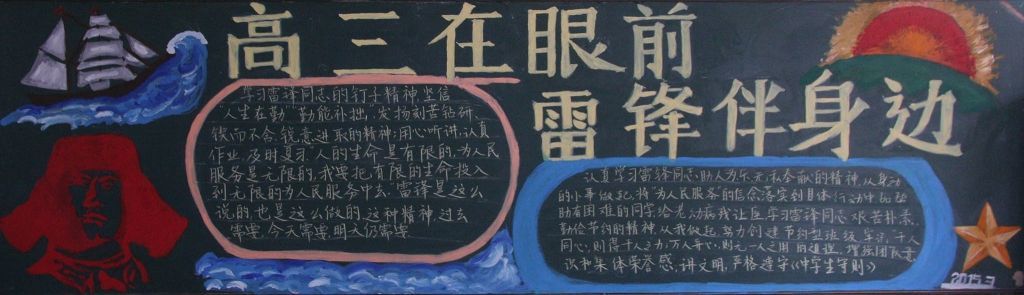 高三在眼前
雷锋伴身边
学习雷锋同志的钉子精神,坚信
人生在勤,勤能补拙,发扬刻苦钻研、
锲而不舍、锐意进取的精神;用心听讲,认真
作业,及时复习。人的生命是有限的,为人民
服务是无限的,我要把有限的生命投入
到无限的为人民服务中去。雷锋是这么
说的,也是这么做的,这种精神过去
需要,今天需要,明天仍需要
认真学习雷锋同志助人为乐,无私奉献的精神,从身边
的小事做起,将“为人民服务”的信念落实到具体行动中
助有困难的同学
学习雷锋同志艰苦朴素、
勤俭节约的精神,从我做起,努力创建节约型班级
同心,则得千人之力;万人异心,则无一人之用的道理,增强团队意
识和集体荣誉感,讲文明,严格遵守《中学生守则》
2015.3